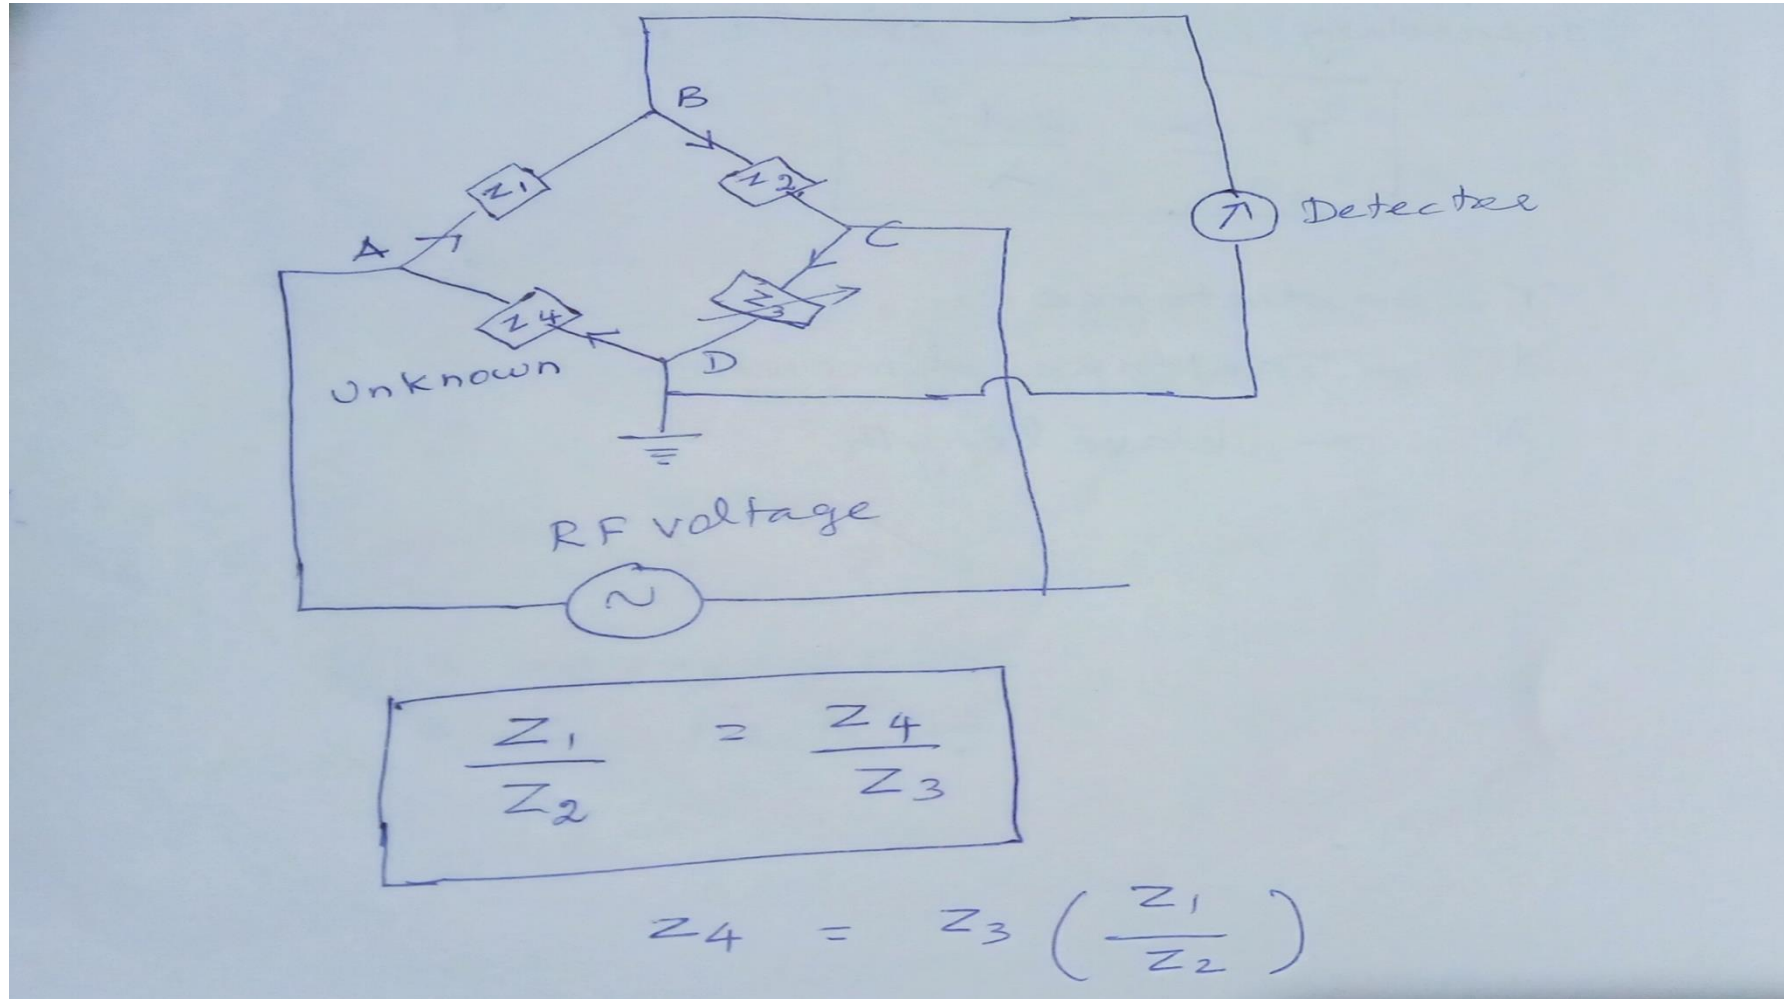 B
Z1
Z2
A
C
Detector
Z4
Z3
Unknown
D
RF voltage
~
Z1 / Z2 = Z4 / Z3
Z4 = Z3 ( Z1 / Z2 )